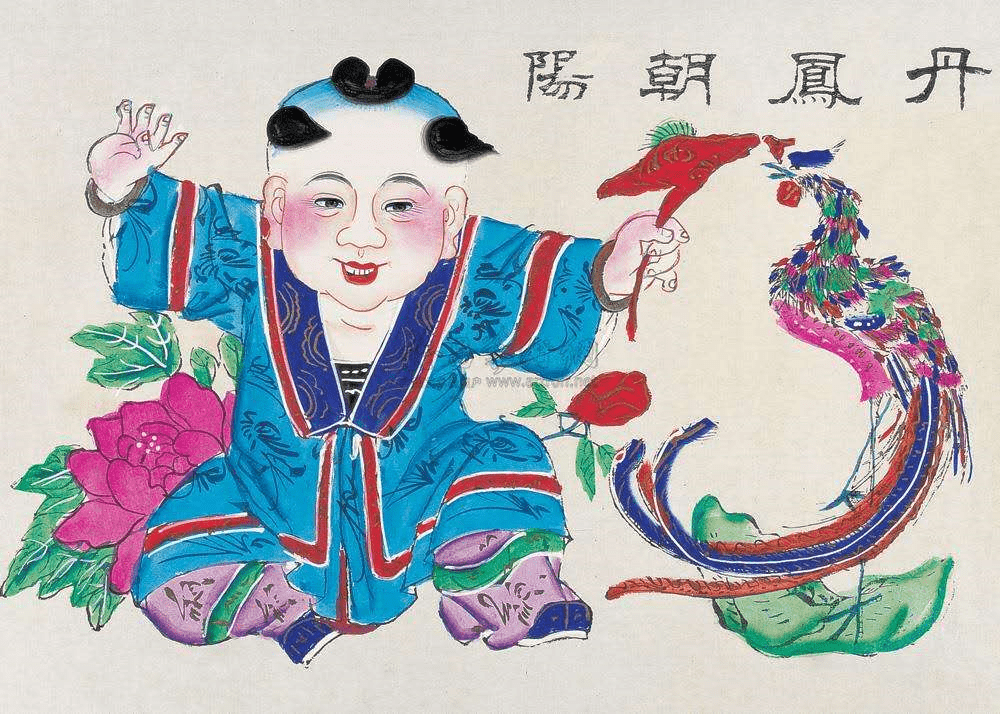 丹鳳朝陽